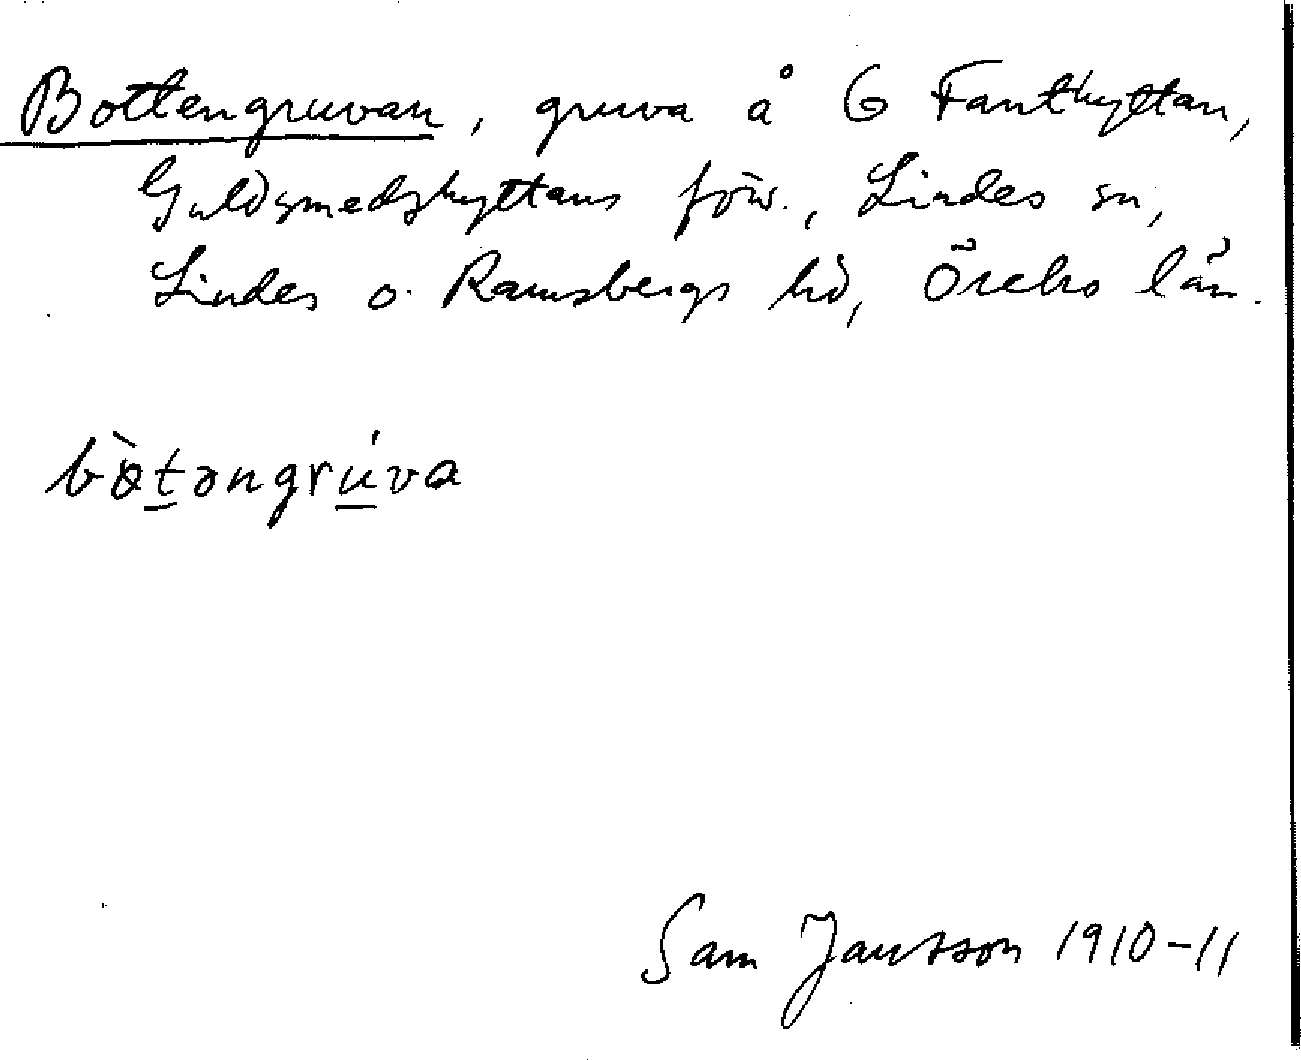 Bottengruvan, gruva å G Fanthyttan,
Guldsmedshyttans förs., Lindes sn,
Lindes o. Ramsbergs hd, Örebro län.
bòtəngrúva
Sam Jansson 1910-11